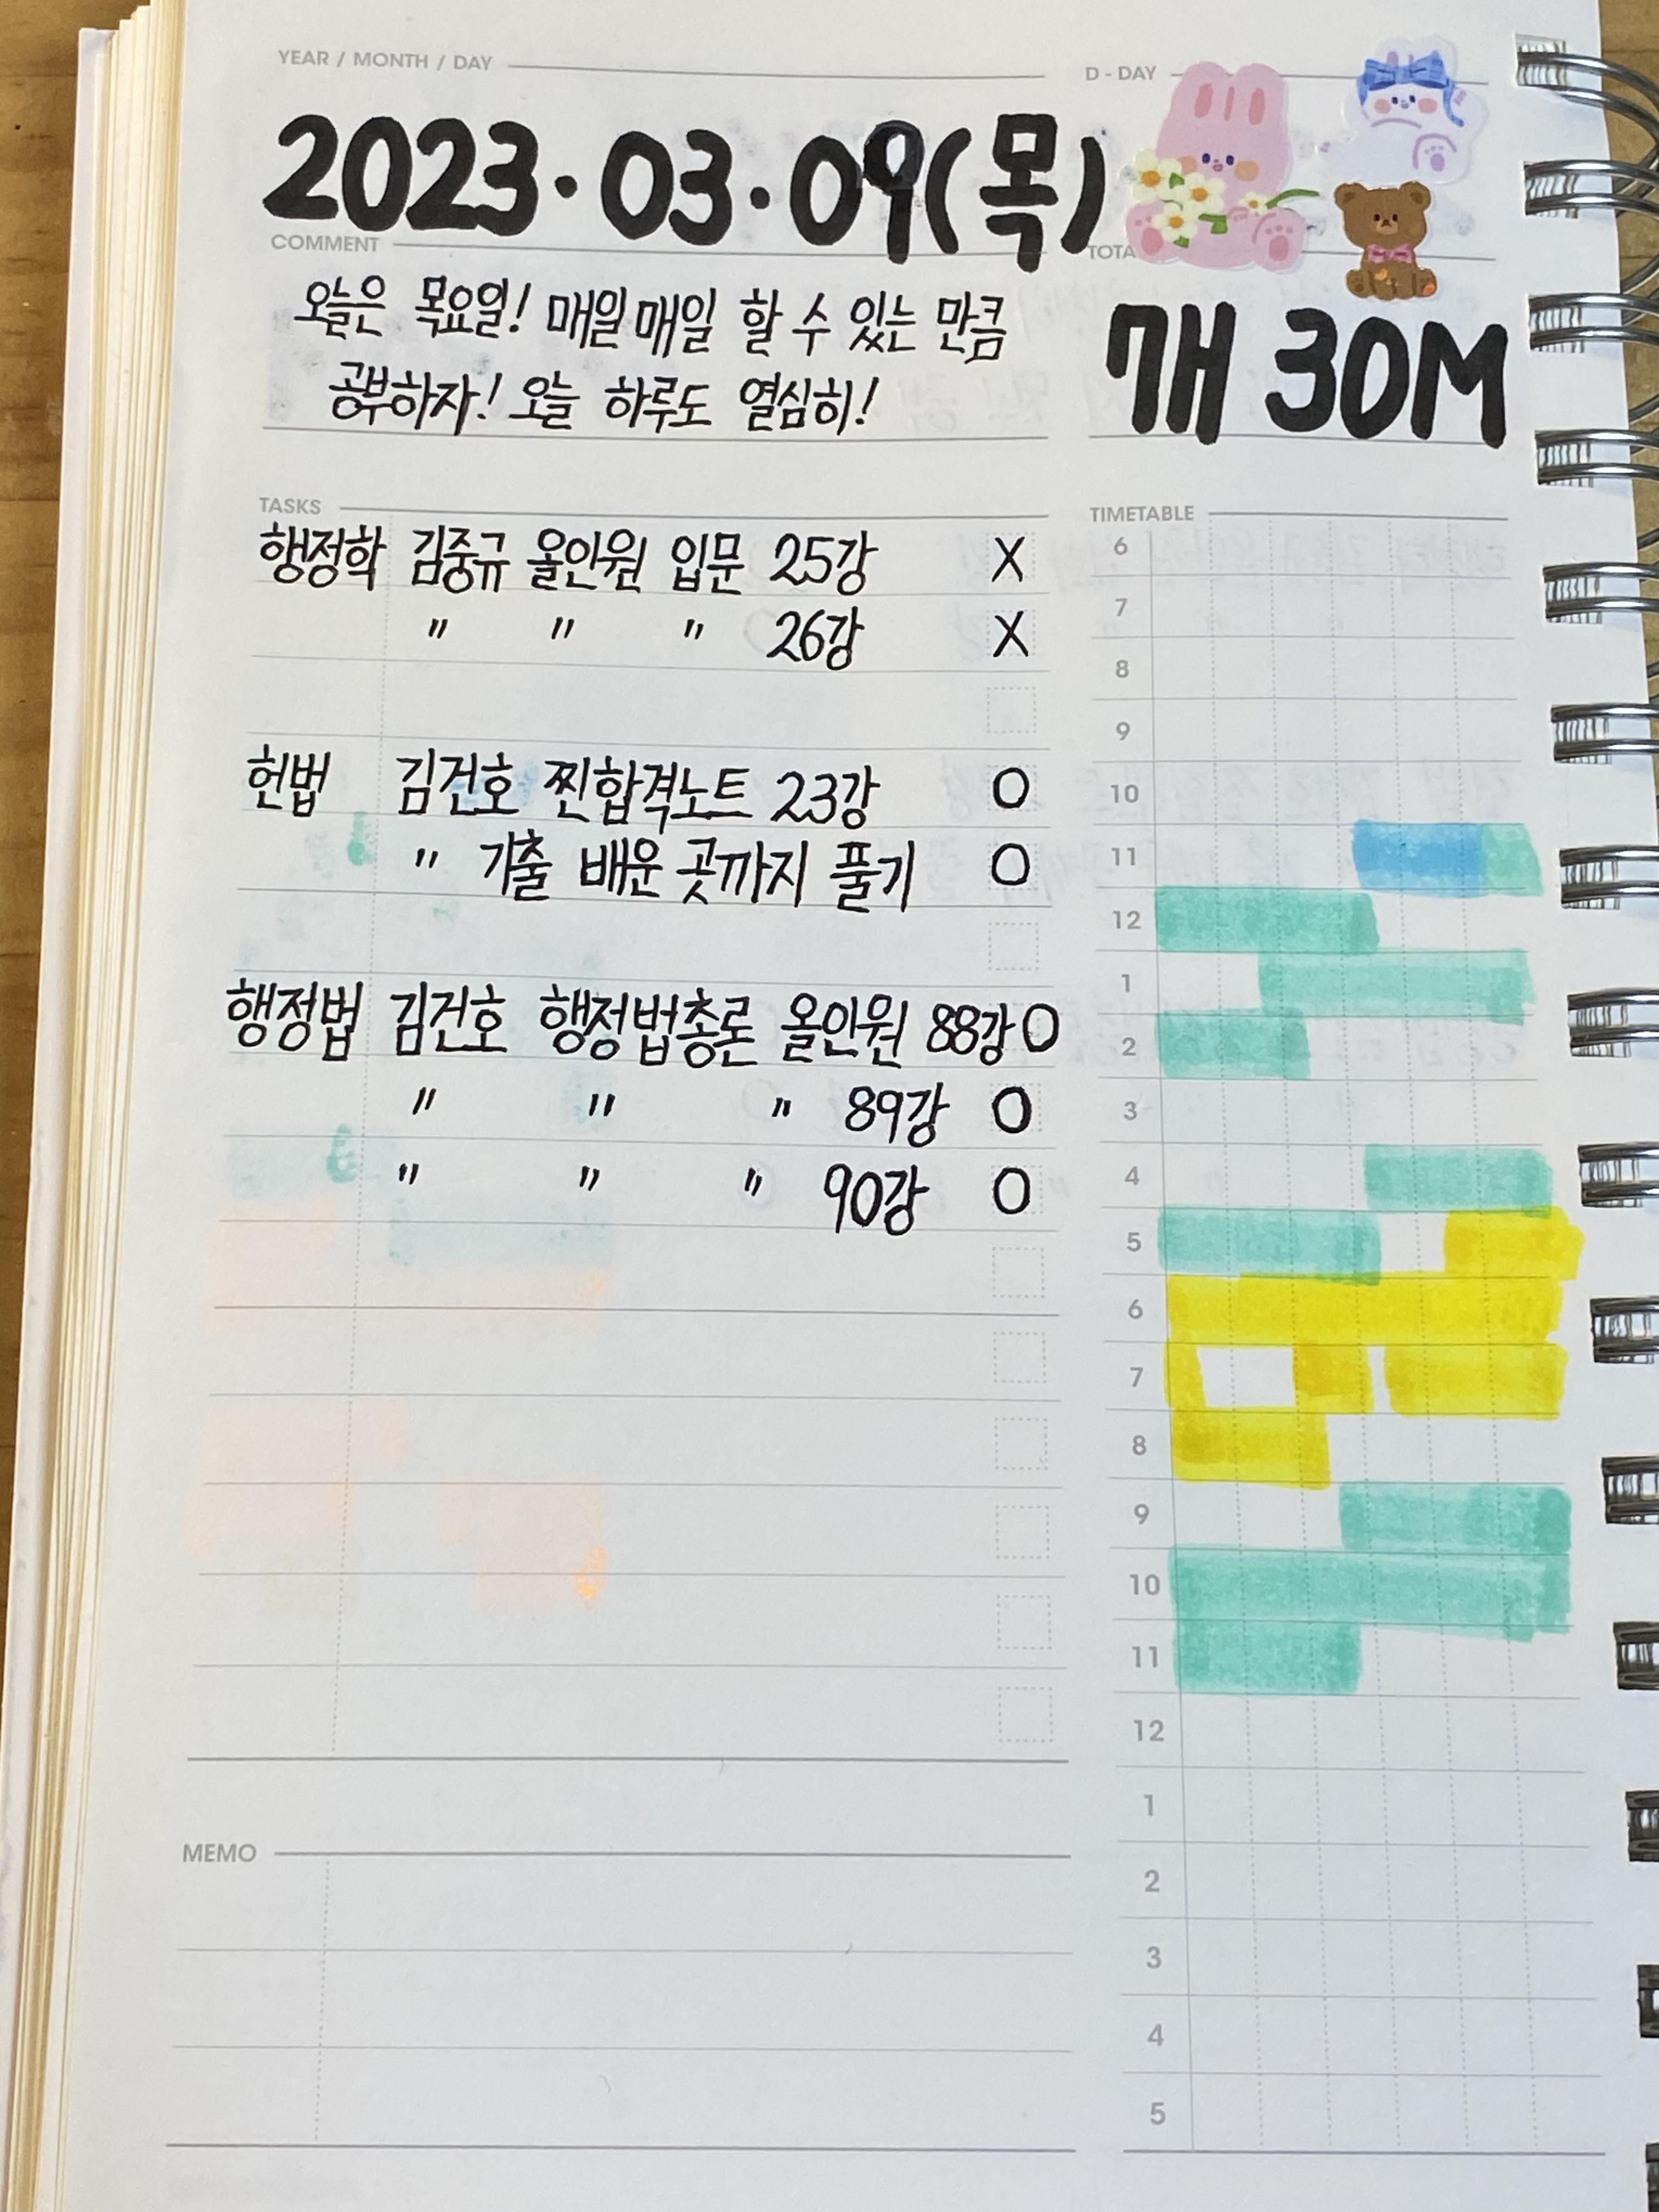 YEAR / MONTH / DAY
2023.03.09(목)
D - DAY
COMMENT
오늘은 목요일! 매일매일 할 수 있는 만큼
공부하자! 오늘 하루도 열심히!
TOTA
7H 30M
TASKS
행정학 김중규 올인원 입문 25강 X
" " " 26강 X
헌법 김건호 찐합격노트 23강 O
" 기출 배운 곳까지 풀기 O
행정법 김건호 행정법총론 올인원 88강 O
" " " 89강 O
" " " 90강 O
MEMO
TIMETABLE
6
7
8
9
10
11
12
1
2
3
4
5
6
7
8
9
10
11
12
1
2
3
4
5